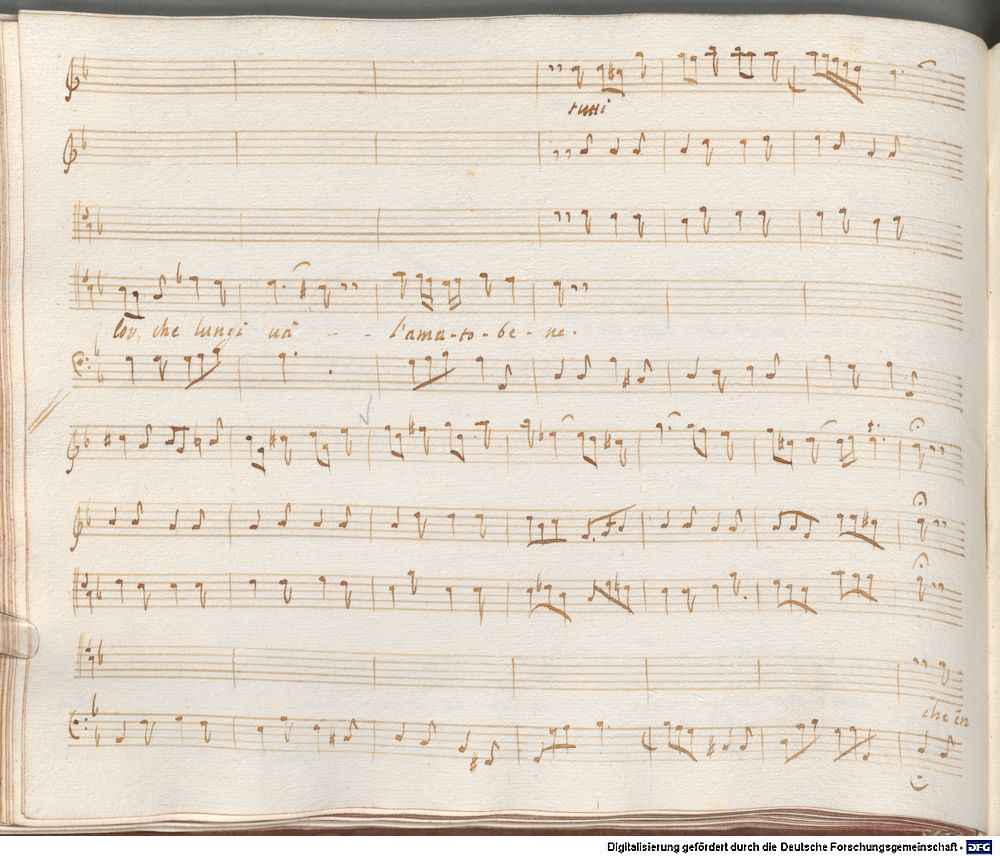 tutti
lor, che lungi uà - - l'ama-to-be-ne.
che in
Digitalisierung gefördert durch die Deutsche Forschungsgemeinschaft - DFG